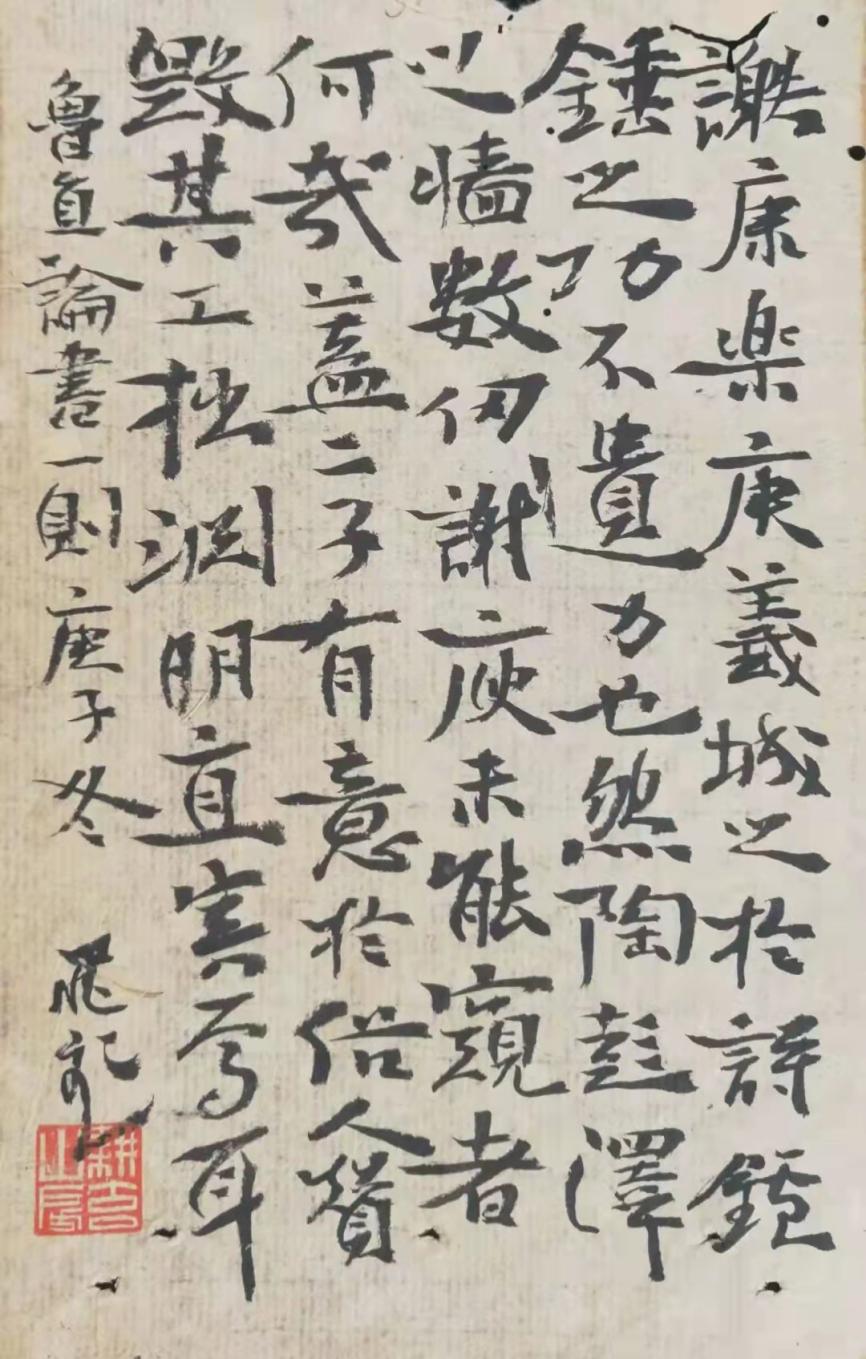 謝康楽庾義城之於詩鑪
錘之功不遺力也然陶彭澤
之牆數仞謝庾未能窺者
何哉蓋二子有意於俗人贊
毀其工拙淵明直寄焉耳
魯直論書一則庚子冬 記